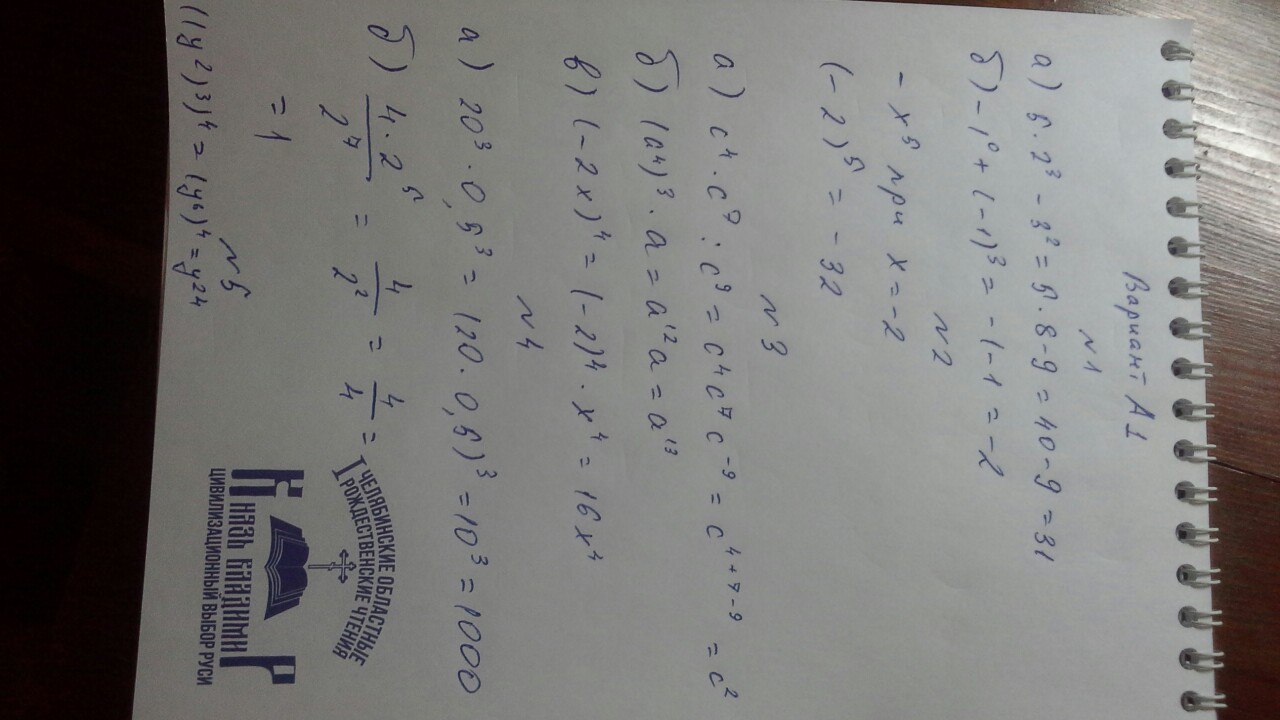 Вариант А1
№1
а) 5·2³ - 3² = 5·8-9 = 40-9 = 31
б) -1⁰ + (-1)³ = -1-1 = -2
№2
- x⁵ при x = -2
(-2)⁵ = -32
№3
а) c⁴·c⁷ : c⁹ = c⁴c⁷c⁻⁹ = c⁴⁺⁷⁻⁹ = c²
б) (a⁴)³·a = a¹²a = a¹³
в) (-2x)⁴ = (-2)⁴·x⁴ = 16x⁴
№4
а) 20³·0,5³ = (20·0,5)³ = 10³ = 1000
б) 4·2⁵/2⁷ = 4/2² = 4/4 =
= 1
№5
((y²)³)⁴ = (y⁶)⁴ = y²⁴
ЧЕЛЯБИНСКИЕ ОБЛАСТНЫЕ
РОЖДЕСТВЕНСКИЕ ЧТЕНИЯ
КНЯЗЬ ВЛАДИМИР
ЦИВИЛИЗАЦИОННЫЙ ВЫБОР РУСИ